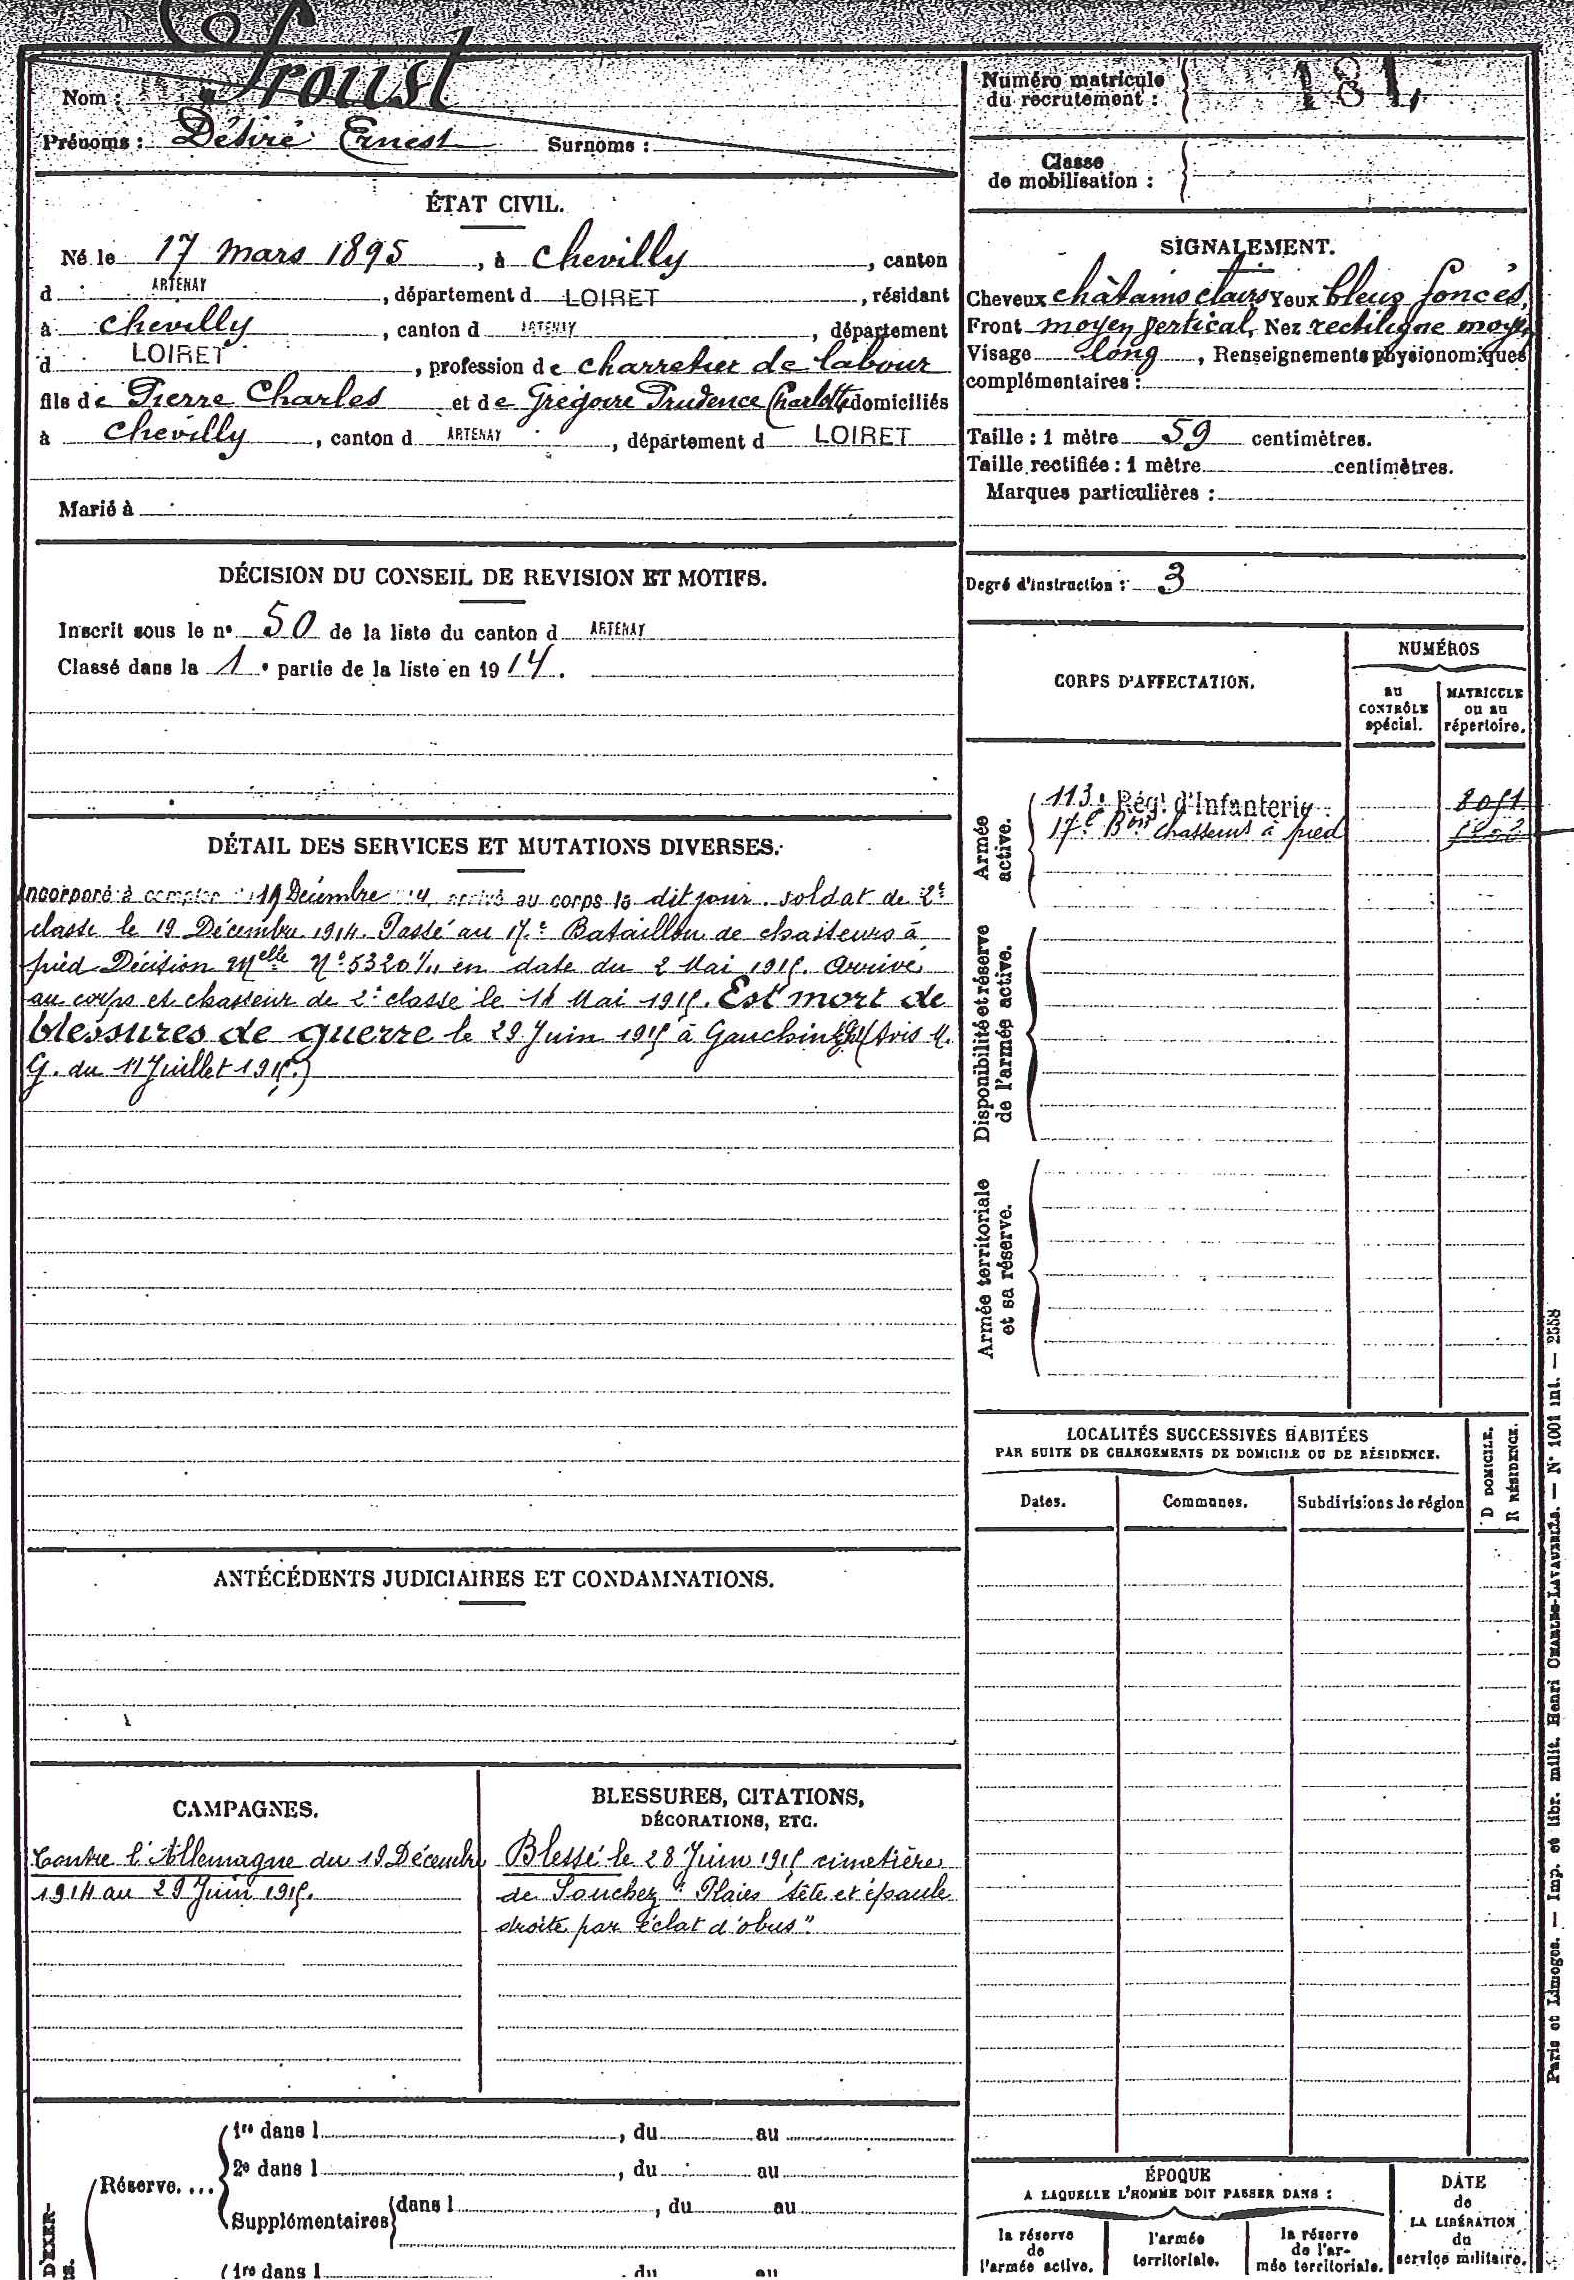 Nom : Proust
Prénoms : Désiré Ernest Surnoms :
ÉTAT CIVIL.
Né le 17 mars 1895, à Chevilly, canton
d ARTENAY, département d LOIRET, résidant
à Chevilly, canton d ARTENAY, département
d LOIRET, profession de charretier de labour
fils de Pierre Charles et de Grégoire Prudence Charlotte domiciliés
à Chevilly, canton d ARTENAY, département d LOIRET
Marié à
DÉCISION DU CONSEIL DE REVISION ET MOTIFS.
Inscrit sous le n° 50 de la liste du canton d ARTENAY
Classé dans la 1e partie de la liste en 1914.
DÉTAIL DES SERVICES ET MUTATIONS DIVERSES.
Incorporé à compter du 19 Décembre 14, arrivé au corps le dit jour. soldat de 2e
classe le 19 Décembre 1914. Passé au 17e Bataillon de chasseurs à
pied Décision Melle N° 5320 en date du 2 Mai 1915. Arrivé
au corps et chasseur de 2e classe le 11 Mai 1915. Est mort de
blessures de guerre le 29 Juin 1915 à Gauchin (Avis M.
G. du 11 Juillet 1915.)
ANTÉCÉDENTS JUDICIAIRES ET CONDAMNATIONS.
CAMPAGNES.
Contre l'Allemagne du 19 Décembre
1914 au 29 Juin 1915.
BLESSURES, CITATIONS,
DÉCORATIONS, ETC.
Blessé le 28 Juin 1915 cimetière
de Souchez "Plaies tête et épaule
droite par éclat d'obus".
D'EXER-
Réserve....
1re dans l , du au
2e dans l , du au
Supplémentaires dans l , du au
1re dans l , du au
Numéro matricule
du recrutement : 181.
Classe
de mobilisation :
SIGNALEMENT.
Cheveux châtains clairs Yeux bleus foncés,
Front moyen vertical, Nez rectiligne moyen
Visage long, Renseignements physionomiques
complémentaires :
Taille : 1 mètre 59 centimètres.
Taille rectifiée : 1 mètre centimètres.
Marques particulières :
Degré d'instruction : 3
CORPS D'AFFECTATION.
NUMÉROS
AU
CONTRÔLE
spécial.
MATRICULE
ou au
répertoire.
Armée
active.
113e Régt d'Infanterie 8051
17e Bon chasseurs à pied
Disponibilité et réserve
de l'armée active.
Armée territoriale
et sa réserve.
LOCALITÉS SUCCESSIVES HABITÉES
PAR SUITE DE CHANGEMENTS DE DOMICILE OU DE RÉSIDENCE.
D DOMICILE.
R RÉSIDENCE.
Dates. Communes. Subdivisions de région
ÉPOQUE
A LAQUELLE L'HOMME DOIT PASSER DANS :
la réserve
de
l'armée active.
l'armée
territoriale.
la réserve
de l'ar-
mée territoriale.
DATE
de
LA LIBÉRATION
du
service militaire.
Paris et Limoges. — Imp. et libr. milit. Henri CHARLES-LAVAUZELLE. — N° 1001 int. — 2558